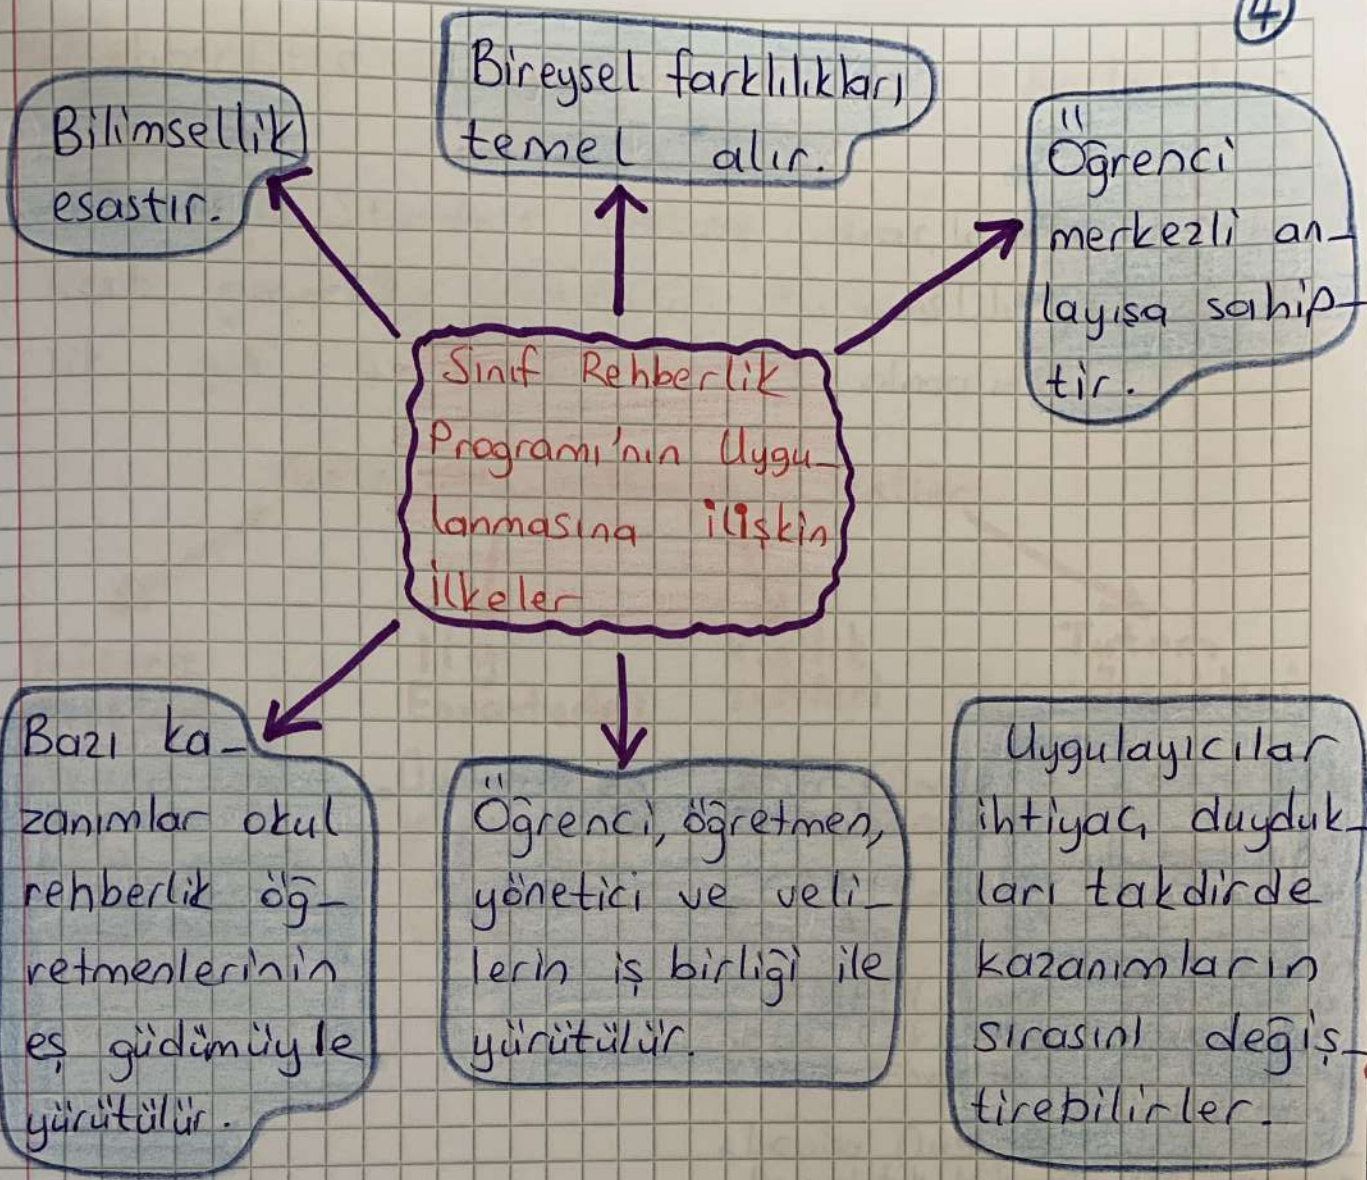 4
Bilimsellik
esastır.
Bireysel farklılıkları
temel alır.
Öğrenci
merkezli an-
layışa sahip-
tir.
Sınıf Rehberlik
Programı'nın Uygu-
lanmasına ilişkin
ilkeler
Bazı ka-
zanımlar okul
rehberlik öğ-
retmenlerinin
eş güdümüyle
yürütülür.
Öğrenci, öğretmen,
yönetici ve veli-
lerin iş birliği ile
yürütülür.
Uygulayıcılar
ihtiyaç duyduk-
ları takdirde
kazanımların
sırasını değiş-
tirebilirler.